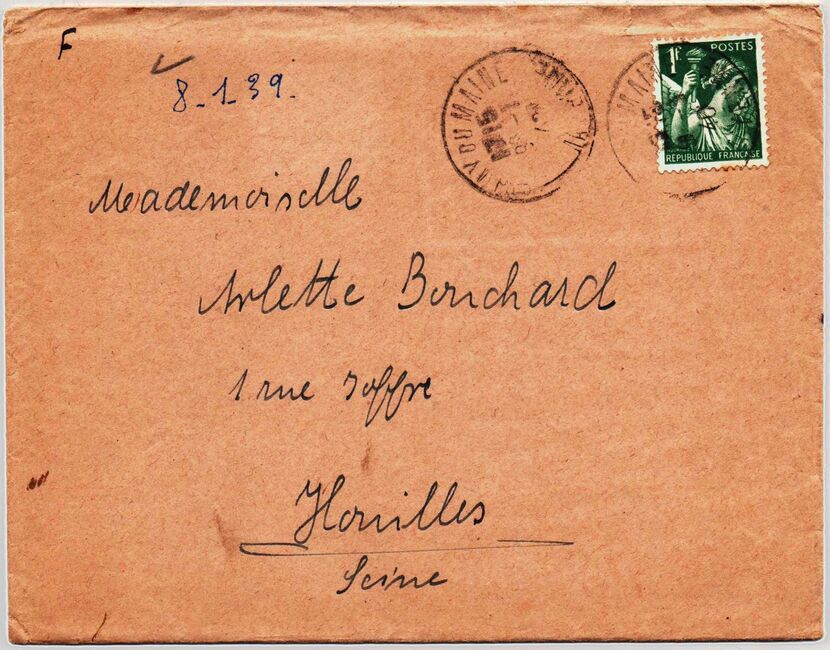 F
8-1-39-
1F. POSTES
RÉPUBLIQUE FRANÇAISE
DU MAINE
MAINE
Mademoiselle
Arlette Bouchard
1 rue Joffre
Houilles
Seine